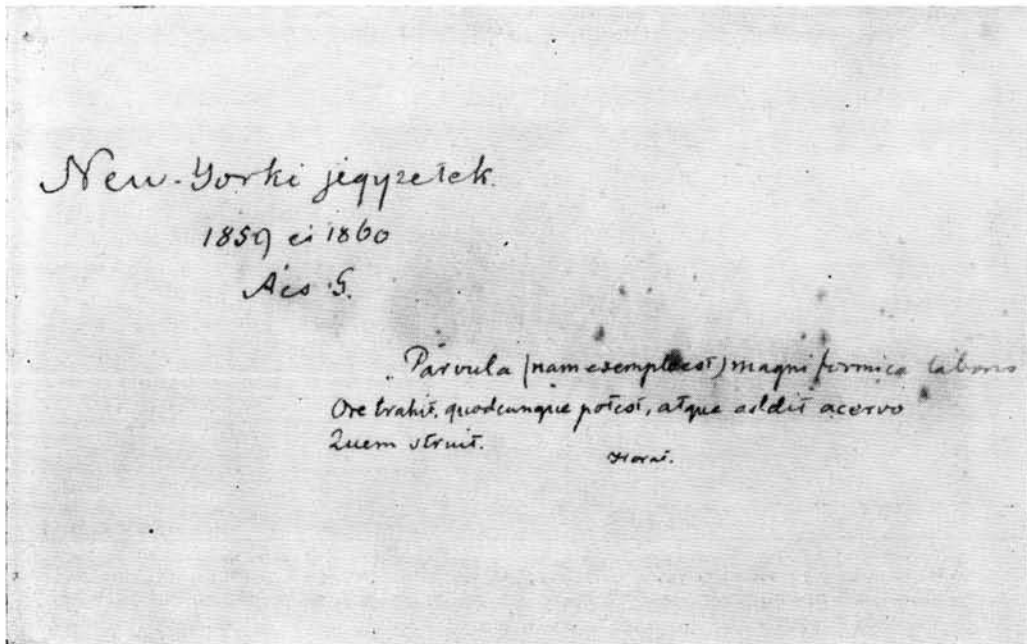 New-Yorki jegyzetek.
1859 és 1860
Ács G.
Parvula (nam exemplo est) magni formica laboris
Ore trahit, quodcunque potest, atque addit acervo
Quem struit.
Horat.